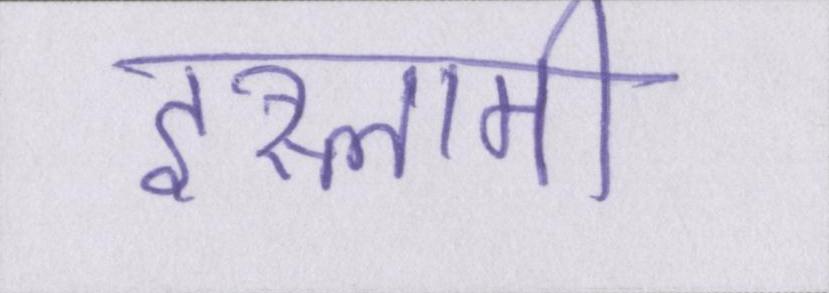 इस्लामी